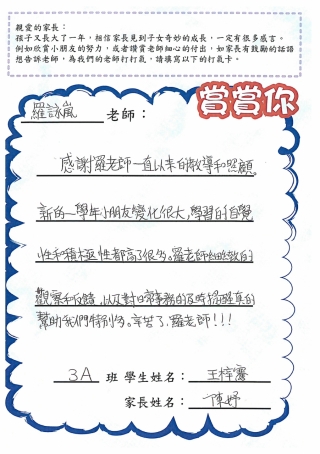 親愛的家長：
孩子又長大了一年，相信家長見到子女奇妙的成長，一定有很多感言。
例如欣賞小朋友的努力，或者讚賞老師細心的付出，如家長有鼓勵的話語
想告訴老師，為我們的老師打打氣，請填寫以下的打氣卡。
賞賞你
羅詠嵐 老師：
感謝羅老師一直以來的教導和照顧。
新的一學年小朋友變化很大，學習的自覺
性和積極性都高了很多。羅老師細致的
觀察和反饋，以及對日常事務的及時提醒真的
幫助我們特別多。辛苦了，羅老師！！！
3A 班 學生姓名： 王梓騫
家長姓名： 陳妤